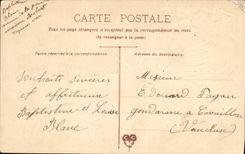 CARTE POSTALE
Tous les pays étrangers n'acceptent pas la correspondance au recto
(Se renseigner à la poste)
Partie réservée à la correspondance
Adresse du destinataire
Souhaits sincères
et affectueux
Baptistine et Louise
Blanc
Monsieur
Edouard Payan
gendarme à Cavaillon
(Vaucluse)